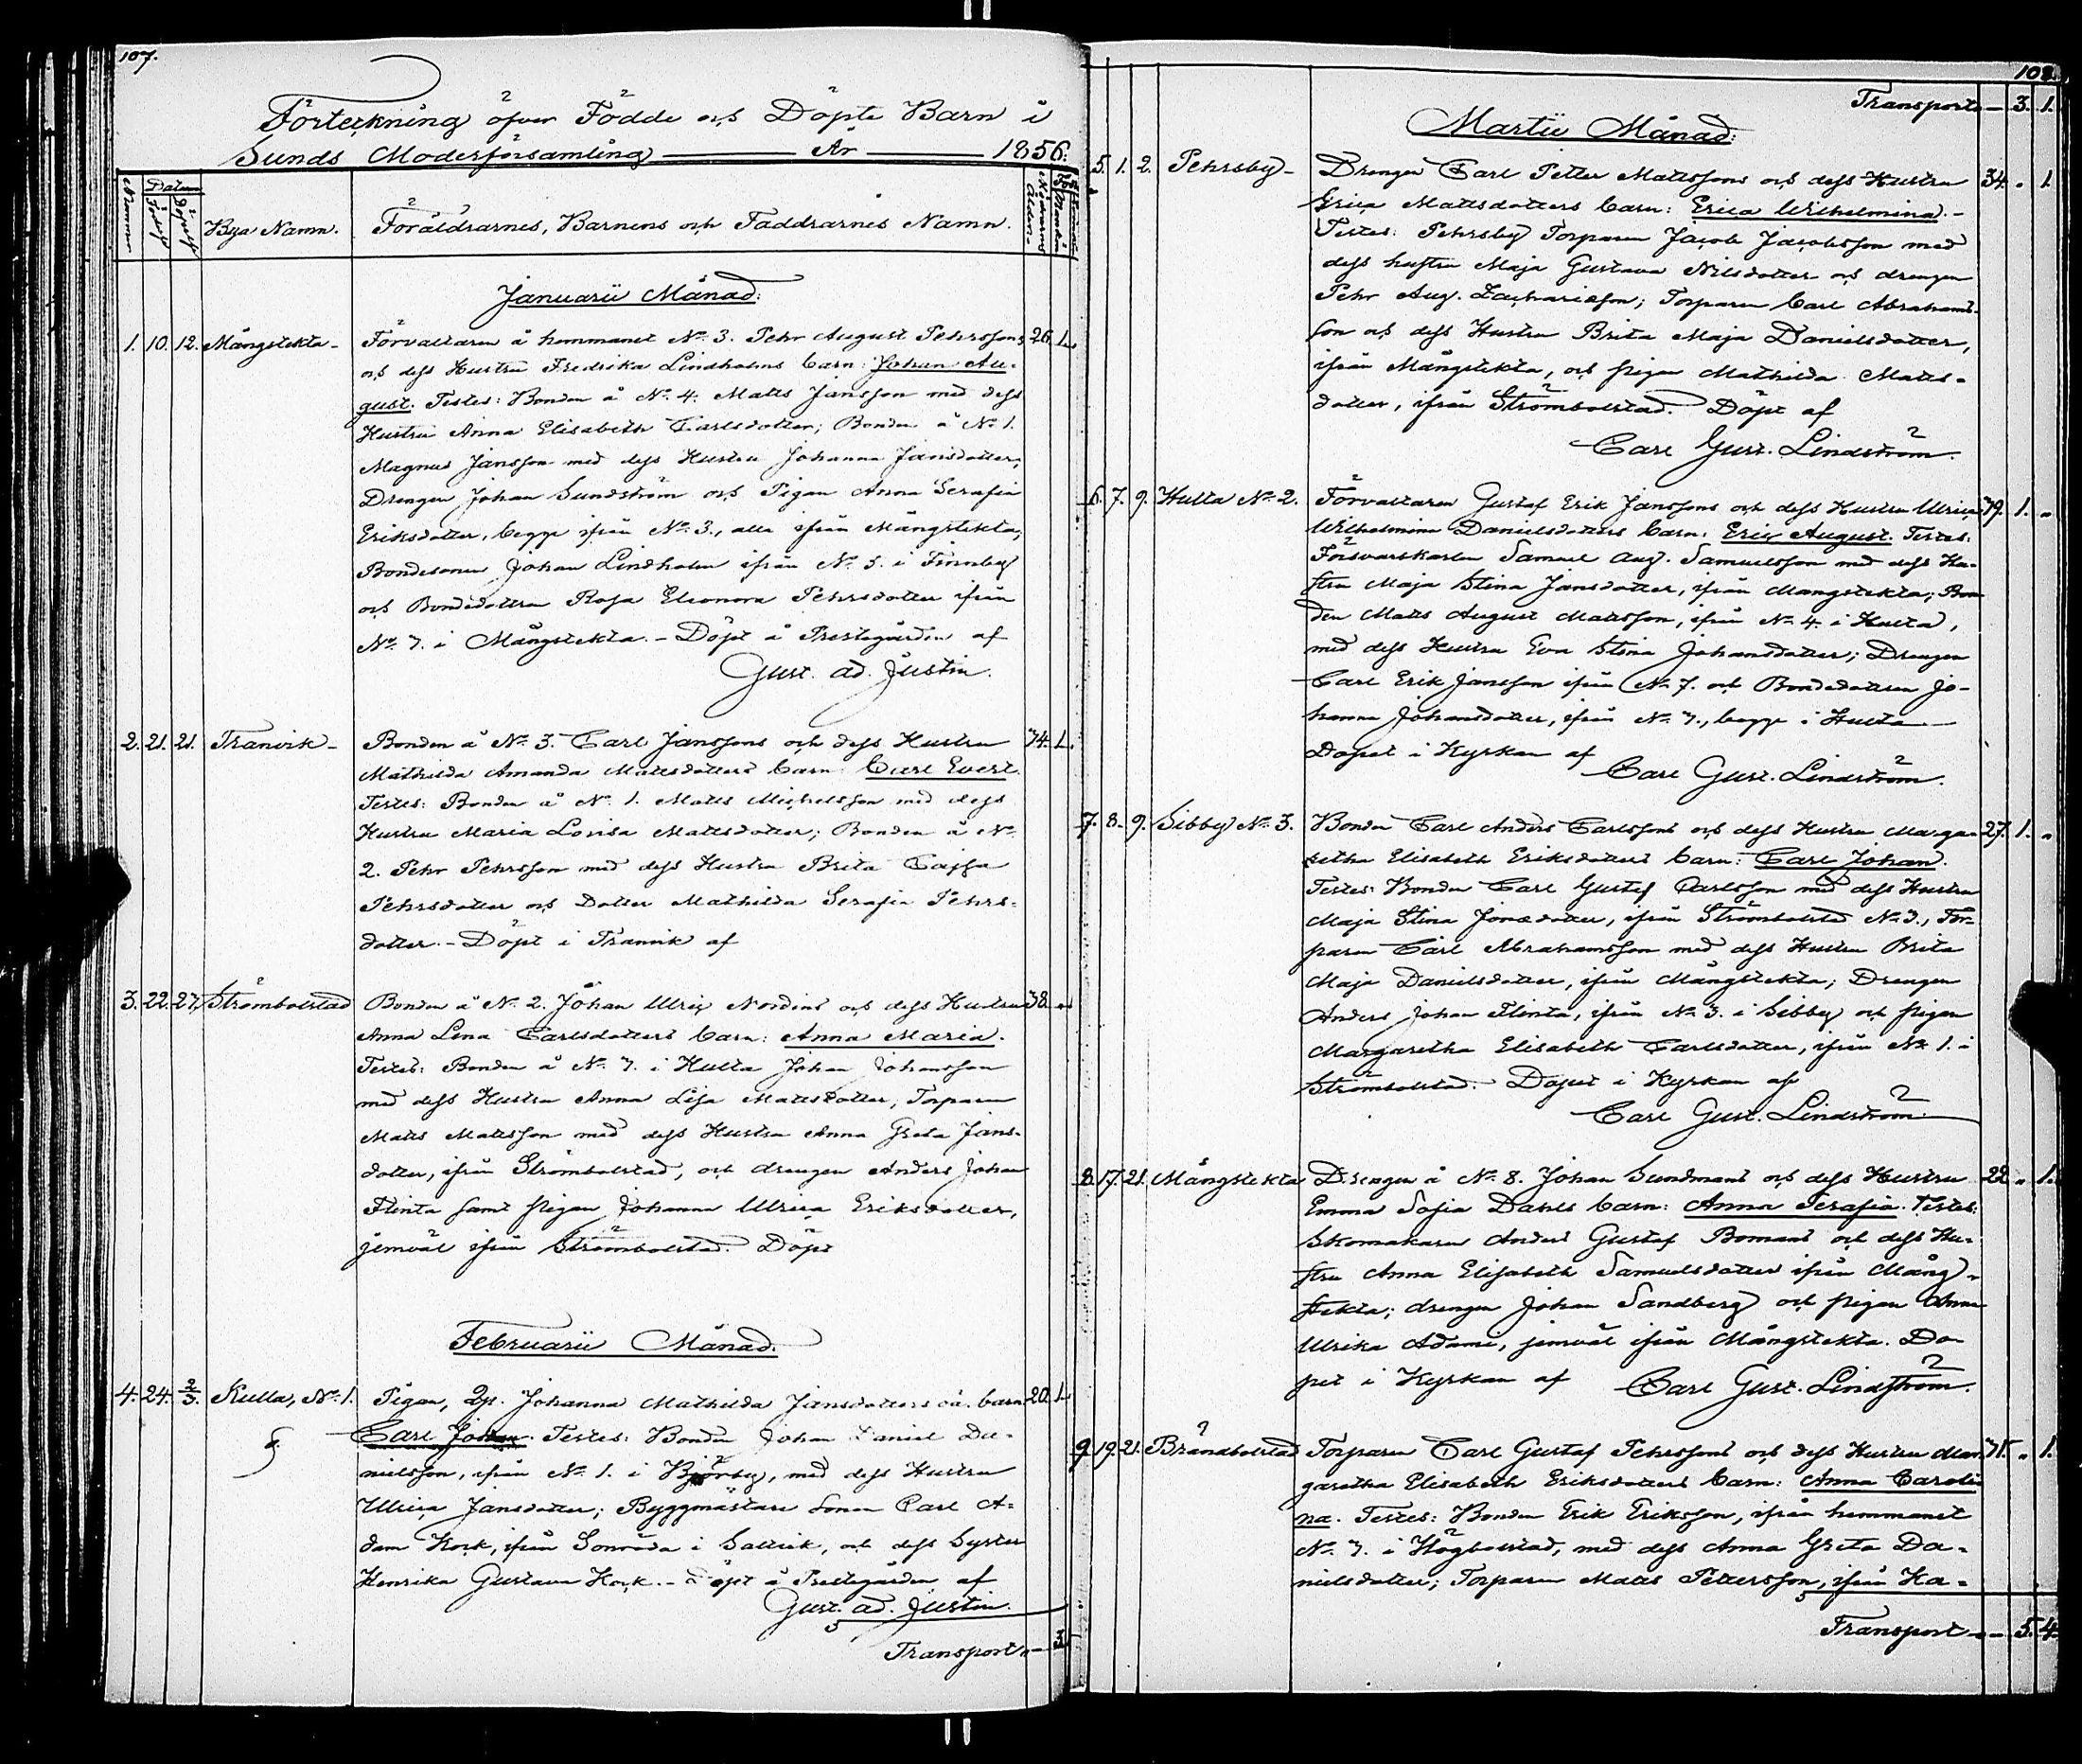 107.
Förteckning öfver Födde och Döpte Barn i
Sunds Moderförsamling — År — 1856.
Nummer
Datum
Födelse
Döpelse
Bya Namn.
Föräldrarnes, Barnens och Faddrarnes Namn.
Ålder
Januarii Månad:
1. 10. 12. Mångstekta - Förvaltaren å hemmanet No. 3. Pehr August Pehrssons 26. 1.
och dess Hustru Fredrika Lindholms barn: Johan Au-
gust. Testes: Bonden å No. 4. Matts Jansson med dess
Hustru Anna Elisabeth Carlsdotter; Bonden å No 1.
Magnus Jansson med dess Hustru Johanna Jansdotter,
Drengen Johan Sundström och Pigan Anna Serafia
Eriksdotter, begge ifrån No. 3., alla ifrån Mångstekta;
Bondesonen Johan Lindholm ifrån No. 5. i Finnby
och Bondedottren Rosa Eleonora Pehrsdotter ifrån
No. 7. i Mångstekta. - Döpt å Prestegården af
Gust. Ad. Justin.
2. 21. 21. Tranvik - Bonden å No. 3. Carl Janssons och dess Hustru 34. 1.
Mathilda Amanda Mattsdotters barn: Carl Evert.
Testes: Bonden å No. 1. Matts Michelsson med dess
Hustru Maria Lovisa Mattsdotter; Bonden å No.
2. Pehr Pehrsson med dess Hustru Brita Cajsa
Pehrsdotter och Dotter Mathilda Serafia Pehrs-
dotter. - Döpt i Tranvik af
3. 22. 27. Strömbolstad Bonden å No. 2. Johan Ulric Nordins och dess Hustru 38.
Anna Lena Carlsdotters barn: Anna Maria.
Testes: Bonden å No. 7. i Hulta Johan Johansson
med dess Hustru Anna Lisa Mattsdotter, Torparen
Matts Mattsson med dess Hustru Anna Greta Jans-
dotter, ifrån Strömbolstad, och drengen Anders Johan
Flinta samt pigan Johanna Ulrica Eriksdotter,
jemväl ifrån Strömbolstad. Döpt
Februarii Månad.
4. 24. 2/3. Kulla, No. 1. Pigan, Johanna Mathilda Jansdotters oä. barn 20. 1.
Carl Johan. Testes: Bonden Johan Daniel Da-
nielsson, ifrån No. 1. i Björby, med dess Hustru
Ulrica Jansdotter; Byggmästare Sonen Carl A-
dam Kock, ifrån Sonröda i Saltvik, och dess Syster
Henrika Gustava Kock. - Döpt å Prestegården af
Gust. Ad. Justin.
Transport - 3.
108.
Transport - 3. 1.
Martii Månad:
5. 1. 2. Pehrsby - Drengen Carl Petter Mattssons och dess Hustru 34. „ 1.
Erica Mattsdotters barn: Erica Wilhelmina. -
Testes: Pehrsby Torparen Jacob Jacobsson med
dess hustru Maja Gustava Nilsdotter och drengen
Pehr Aug. Zachariesson; Torparen Carl Abrahams-
son och dess Hustru Brita Maja Danielsdotter,
ifrån Mångstekta, och pigan Mathilda Matts-
dotter, ifrån Strömbolstad. Döpt af
Carl Gust. Lindström.
6. 7. 9. Hulta No. 2. Förvaltaren Gustaf Erik Janssons och dess Hustru Ulrica 39. 1. „
Wilhelmina Danielsdotters barn: Eric August. Testes:
Försvarskarlen Samuel Aug. Samuelsson med dess Hu-
stru Maja Stina Jansdotter, ifrån Mangstekta; Bon-
den Matts August Mattsson, ifrån No. 4. i Hulta,
med dess Hustru Eva Stina Johansdotter; Drengen
Carl Erik Jansson ifrån No. 7. och Bondedottren Jo-
hanna Johansdotter, ifrån No. 7., begge i Hulta —
Döpet i Kyrkan af
Carl Gust. Lindström.
7. 8. 9. Sibby No. 3. Bonden Carl Anders Carlssons och dess Hustru Marga- 27. 1. „
retha Elisabeth Eriksdotters barn: Carl Johan.
Testes: Bonden Carl Gustaf Carlsson med dess Hustru
Maja Stina Jonædotter, ifrån Strömbolstad No. 3., Tor-
paren Carl Abrahamsson med dess Hustru Brita
Maja Danielsdotter, ifrån Mångstekta; Drengen
Anders Johan Flinta, ifrån No. 3. i Sibby och pigan
Margaretha Elisabeth Carlsdotter, ifrån No. 1. i
Strömbolstad. Döpet i Kyrkan af
Carl Gust. Lindström.
8. 17. 21. Mångstekta Drengen å No. 8. Johan Sundmans och dess Hustru 22. „ 1.
Emma Sofia Dahls barn: Anna Serafia. Testes:
Skomakaren Anders Gustaf Bomans och dess Hu-
stru Anna Elisabeth Samuelsdotter ifrån Mång-
stekta; drengen Johan Sandberg och pigan Anna
Ulrika Adams, jemväl ifrån Mångstekta. Dö-
pet i Kyrkan af Carl Gust. Lindström.
9. 19. 21. Brändbolstad Torparen Carl Gustaf Pehrssons och dess Hustru Mar- „ 1.
garetha Elisabeth Eriksdotters barn: Anna Caroli-
na. Testes: Bonden Erik Eriksson, ifrån hemmanet
No. 7. i Högbolstad, med dess Anna Greta Da-
nielsdotter; Torparen Matts Pettersson, ifrån Ka-
Transport - 5. 4.